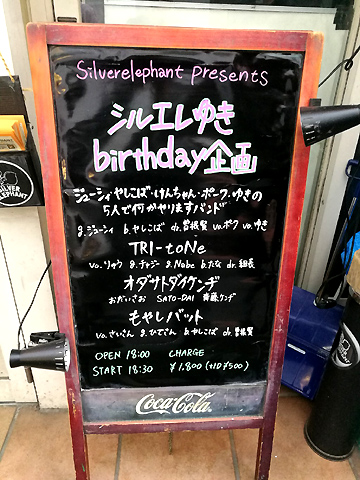 Silverelephant presents
シルエレゆき
birthday企画
ジューシィ・やしこば・けんちゃん・ポーク・ゆきの
5人で何かやりますバンド
g.ジューシィ b.やしこば dr.曽根賢 vo.ポーク vo.ゆき
TRI-toNe
vo.りゅう g.チャジー g.Nabe b.たな dr.組長
オダサトダイケンヂ
おだいさお SATO-DAI 斉藤ケンヂ
もやしバット
vo.さいさん g.ひでさん b.やしこば dr.曽根賢
OPEN 18:00 CHARGE
START 18:30 ¥1,800 (+1D ¥500)
Coca-Cola
SILVER
ELEPHANT